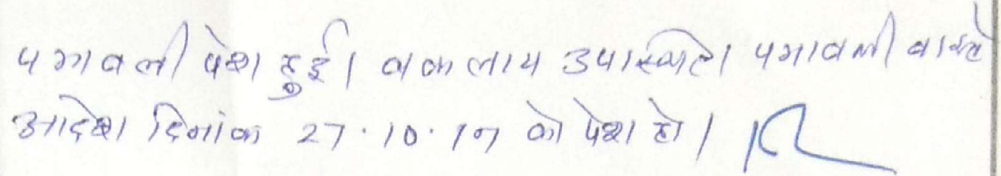 पत्रावली पेश हुई। वकलाय उपास्थित। पत्रावली वास्ते
आदेश दिनांक 27.10.17 को पेश हो।